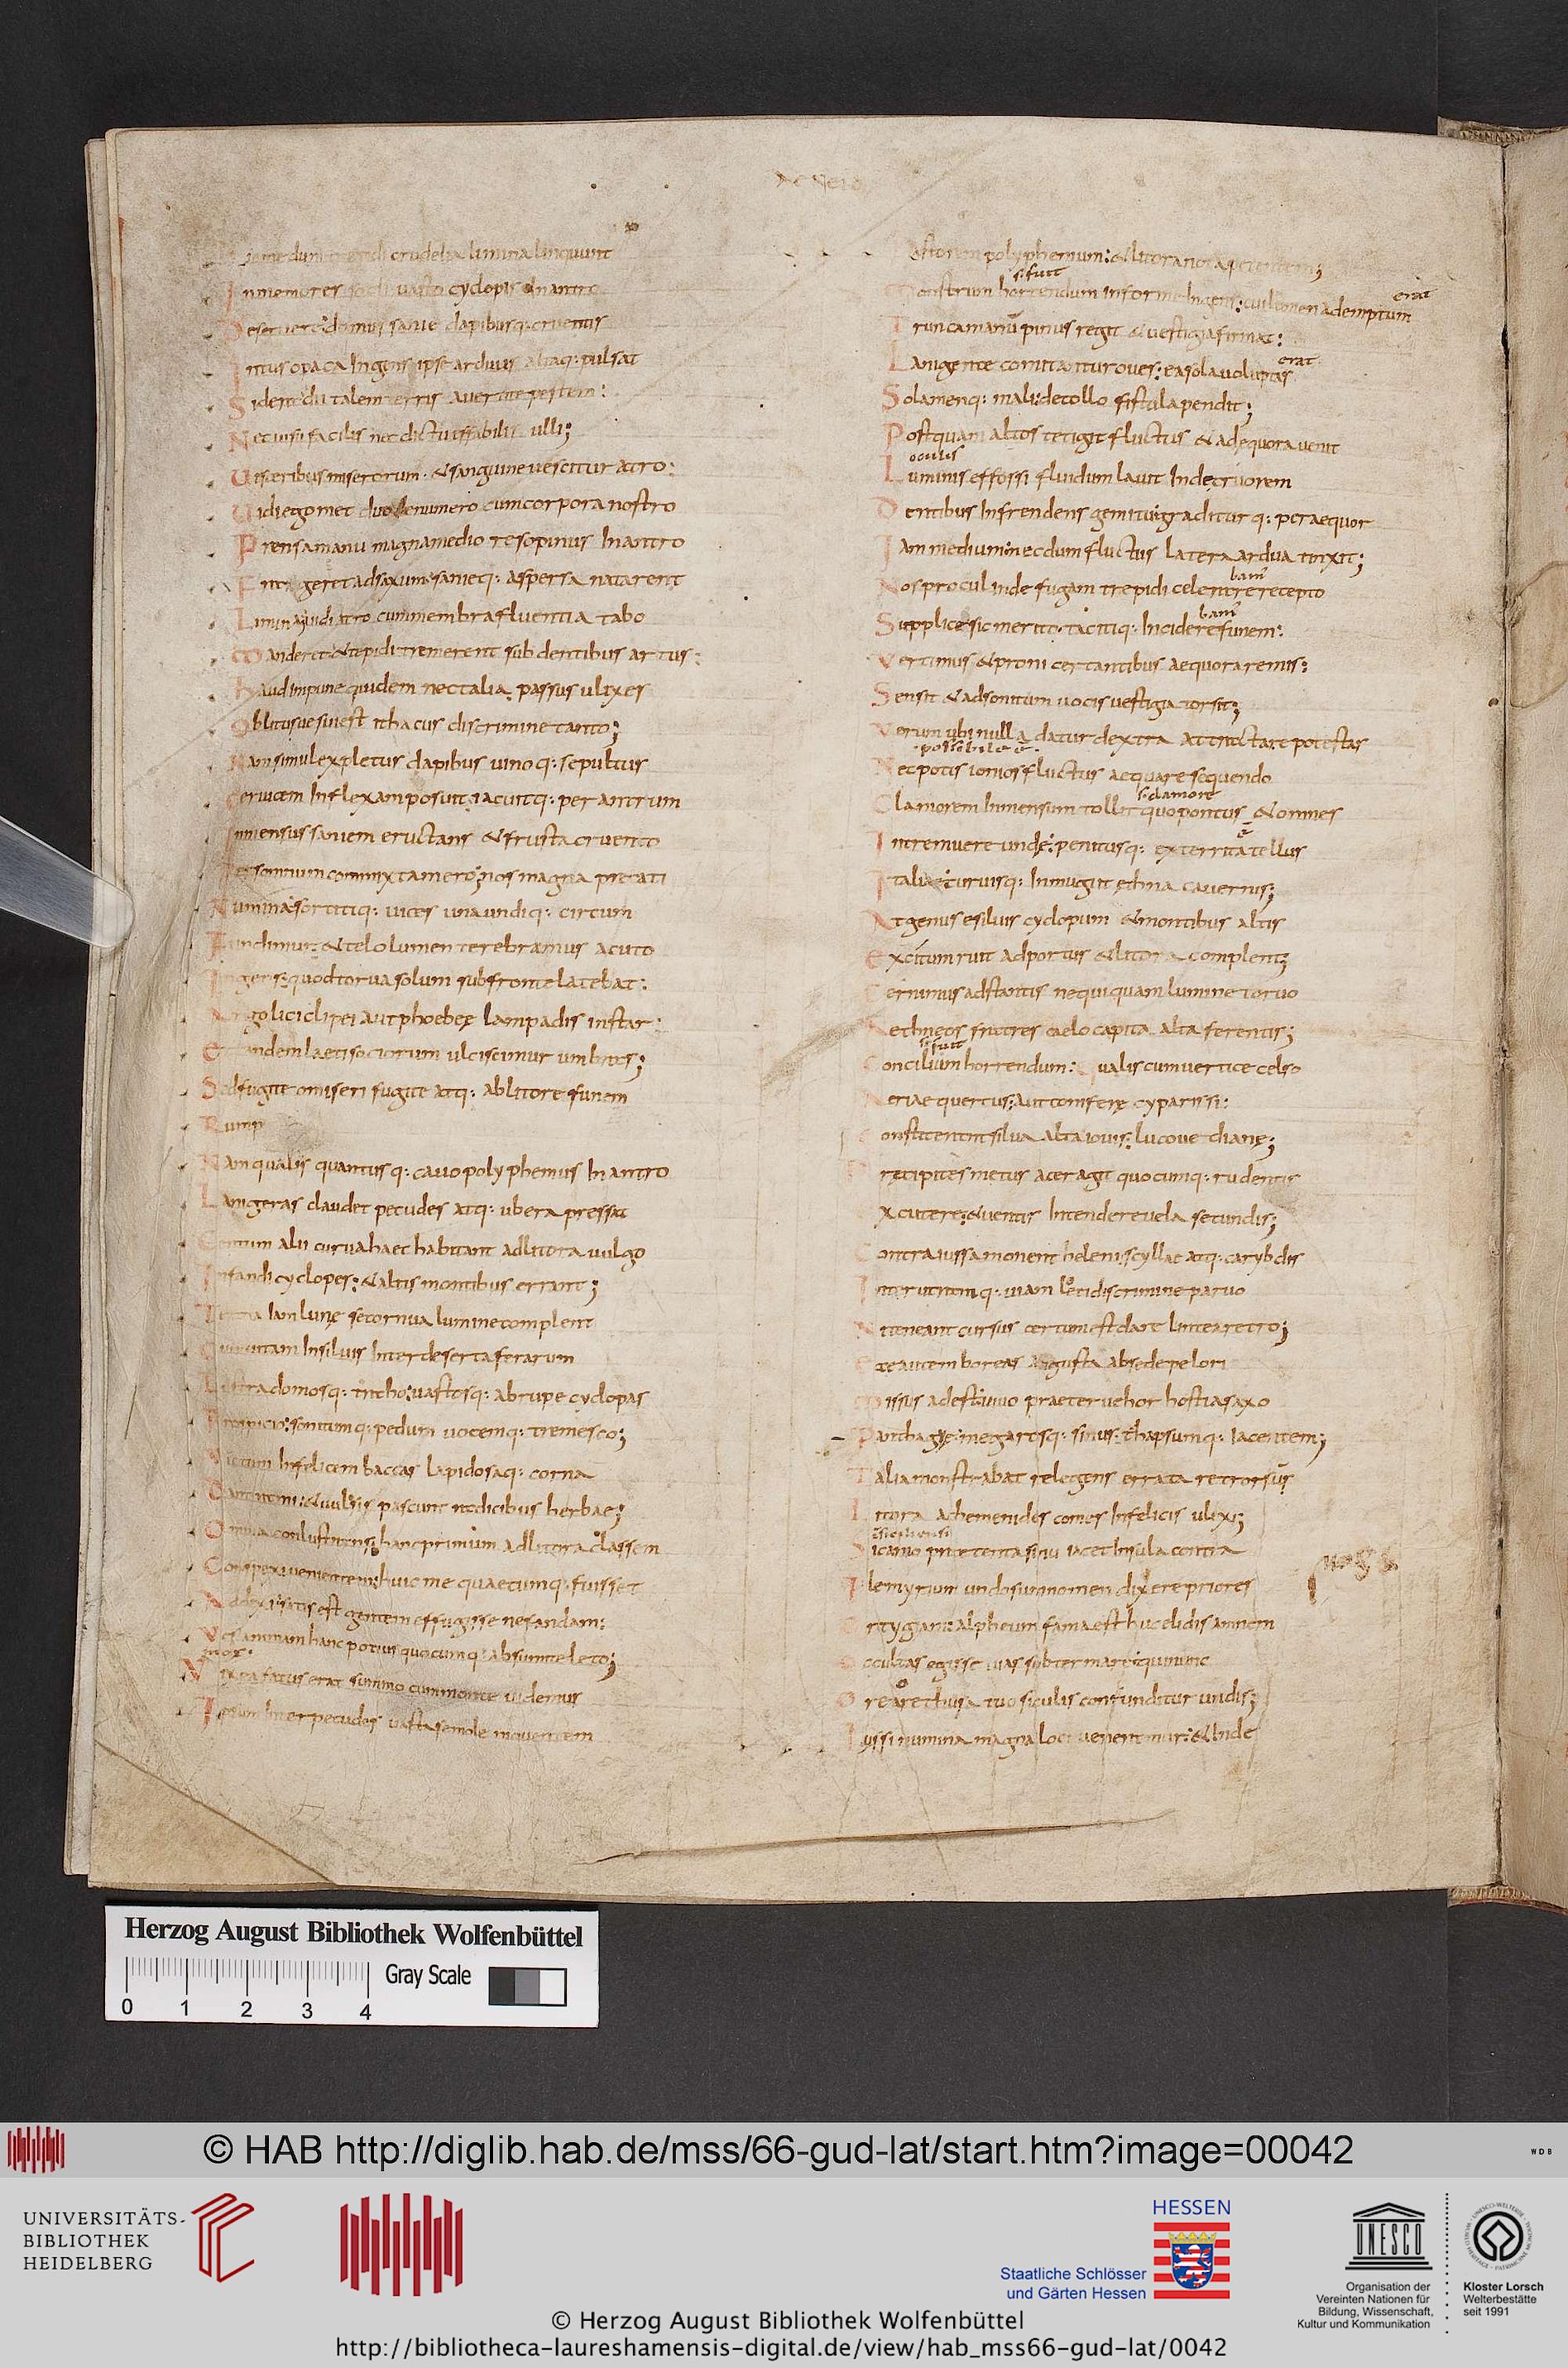 AENEID
dum trepidi crudelia limina linquunt
Inmemores socii uasto cyclopis &nantro
Deseruere: domus sanie dapibusq: cruentis
Intus opaca Ingens ipse arduus altaq: pulsat
Sidera dii talem terris auertite pestem:
Nec uisu facilis nec dictu affabilis ulli;
Uisceribus miserorum. & sanguine uescitur atro:
Uidi egomet duo de numero cum corpora nostro
Prensa manu magna medio resopinus In antro
geret ad saxum: sanieq: aspersa natarent
Limina uidi atro cum membra fluentia tabo
Manderet & tepidi tremerent sub dentibus artus:
haud Impune quidem nec talia passus ulixes
Oblitusue sui est ithacus discrimine tanto;
Nam simul expletus dapibus uinoq: sepultus
Ceruicem Inflexam posuit iacuitq: per antrum
Inmensus saniem eructans & frusta cruento
Per somnum commixta mero; nos magna precati
Numina: sortitiq: uices una undiq: circum
Fundimur: & telo lumen terebramus acuto
Ingens: quod torua solum sub fronte latebat:
Argolici clipei aut phoebeę lampadis instar:
Et tandem laeti sociorum ulciscimur umbras;
Sed fugite o miseri fugite atq: ab litore funem
Rump
Nam qualis quantusq: cauo polyphemus In antro
Lanigeras claudet pecudes atq: ubera pressat
Centum alii curua haec habitant ad litora uulgo
Infandi cyclopes: & altis montibus errant;
Tertia Iam lunę se cornua lumine complent
Cum uitam In siluis Inter deserta ferarum
Lustra domosq: traho: uastosq: ab rupe cyclopas
Prospicio: sonitumq: pedum uocemq: tremesco;
Uictum Infelicem baccas lapidosaq: corna
Dant rami: & uulsis pascunt radicibus herbae;
Omnia conlustrans; hanc primum ad litora classem
Conspexi uenientem: huic me quaecumq: fuisset
Addixi: satis est gentem effugisse nefandam:
Vos animam hanc potius quocumq: absumite leto;
mox
Vix ea fatus erat summo cum monte uidemus
Ipsum Inter pecudes uasta se mole mouentem
Pastorem polyphemum: & litora nota petentem;
s. fuit
erat
Monstrum horrendum informe Ingens: cui lumen ademptum
Trunca manū pinus regit & uestigia firmat:
erat
Lanigerae comitantur oues: ea sola uoluptas
Solamenq: mali: de collo fistula pendit;
Postquam altos tetigit fluctus & ad equora uenit
oculis
Luminis effossi fluidum lauit Inde cruorem
Dentibus Infrendens gemitu: graditurq: per aequor
Iam medium: necdum fluctus latera ardua tinxit;
bam
Nos procul inde fugam trepidi celerare recepto
bam
Supplice sic merito: tacitiq: Incidere funem:
Vertimus & proni certantibus aequora remis:
Sensit & ad sonitum uocis uestigia torsit;
Verum ubi nulla datur dextra attrectare potestas
possibile ē
Nec potis ionios fluctus aequare sequendo
s. clamore
Clamorem Inmensum tollit quo pontus & omnes
ē
Intremuere undę: penitusq: exterrita tellus
Italiae: curuisq: Inmugiit ethna cauernis;
At genus e siluis cyclopum & montibus altis
Excitum ruit ad portus & litora complent;
Cernimus adstantis nequiquam lumine toruo
Aethneos fratres caelo capita alta ferentis;
s. fuit
Concilium horrendum: qualis cum uertice celso
Aeriae quercus: aut coniferę cyparissi:
Constiterunt silua alta iouis: lucoue dianę;
Pręcipites metus acer agit quocumq: rudentis
Excutere: & uentis Intendere uela secundis;
Contra iussa monent heleni: scyllae atq: carybdis
Inter utramq: uiam leti discrimine paruo
Ni teneant cursus certum est dare lintea retro;
Ecce autem boreas angusta ab sede pelori
Missus adest: uiuo praeteruehor hostia saxo
Pantagię: megarosq: sinus: thapsumq: Iacentem;
Talia monstrabat relegens errata retrorsus
Litora achemenides comes Infelicis ulixi;
Sicanio praetenta sinu iacet Insula contra
Plemyrium undosum: nomen dixere priores
Ortygiam: alpheum fama est huc elidis amnem
Occultas egisse uias subter mare: qui nunc
Ore arethusa tuo siculis confunditur undis;
Iussi numina magna loci ueneramur: & Inde
Herzog August Bibliothek Wolfenbüttel
Gray Scale
0 1 2 3 4
© HAB http://diglib.hab.de/mss/66-gud-lat/start.htm?image=00042
WDB
UNIVERSITÄTS-
BIBLIOTHEK
HEIDELBERG
HESSEN
Staatliche Schlösser
und Gärten Hessen
UNESCO
Organisation der
Vereinten Nationen für
Bildung, Wissenschaft,
Kultur und Kommunikation
Kloster Lorsch
Welterbestätte
seit 1991
© Herzog August Bibliothek Wolfenbüttel
http://bibliotheca-laureshamensis-digital.de/view/hab_mss66-gud-lat/0042